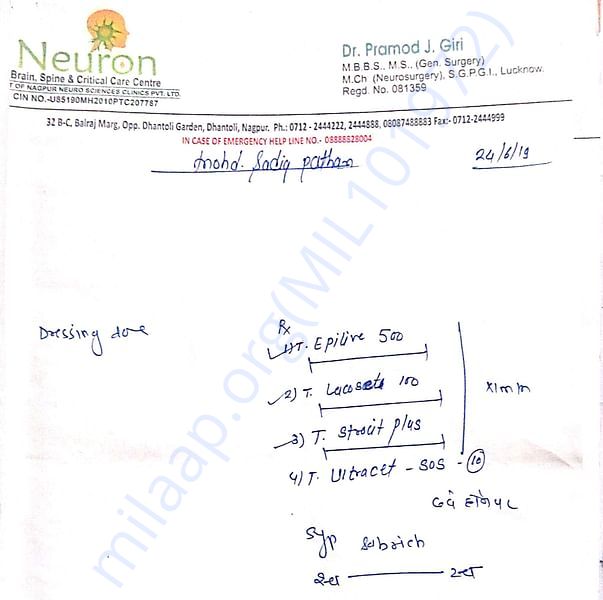 Neuron
Brain, Spine & Critical Care Centre
T OF NAGPUR NEURO SCIENCES CLINICS PVT. LTD.
CIN NO.-U85190MH2010PTC207787
Dr. Pramod J. Giri
M.B.B.S., M.S., (Gen. Surgery)
M.Ch (Neurosurgery), S.G.P.G.I., Lucknow.
Regd. No. 081359
32 B-C, Balraj Marg, Opp. Dhantoli Garden, Dhantoli, Nagpur. Ph.: 0712 - 2444222, 2444888, 08087488883 Fax:- 0712-2444999
IN CASE OF EMERGENCY HELP LINE NO.- 08888828004
Mohd. Sadiq Pathan
24/6/19
Dressing done
Rx
1) T. Epilive 500
2) T. Lacosets 100
3) T. Strocit plus
x1m/m
4) T. Ultracet - SOS - 10
दर्द होने पर
Syp Subrich
milaap.org(MIL101972)